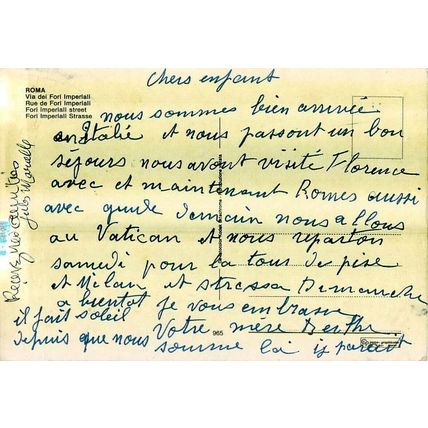 ROMA
Via dei Fori Imperiali
Rue de Fori Imperiali
Fori Imperiali street
Fori Imperiali Strasse
Chers enfant
nous sommes bien arrivée
en Italie et nous passont un bon
séjours nous avont visité Florence
avec et maintenant Romes aussi
avec guide demain nous allons
au Vatican et nous reparton
samedi pour la tour de pise
et Milan et stressa Demanche
a bientot je vous embrasse
Votre mère Berthe
il fait soleil
depuis que nous
somme
is parait
965